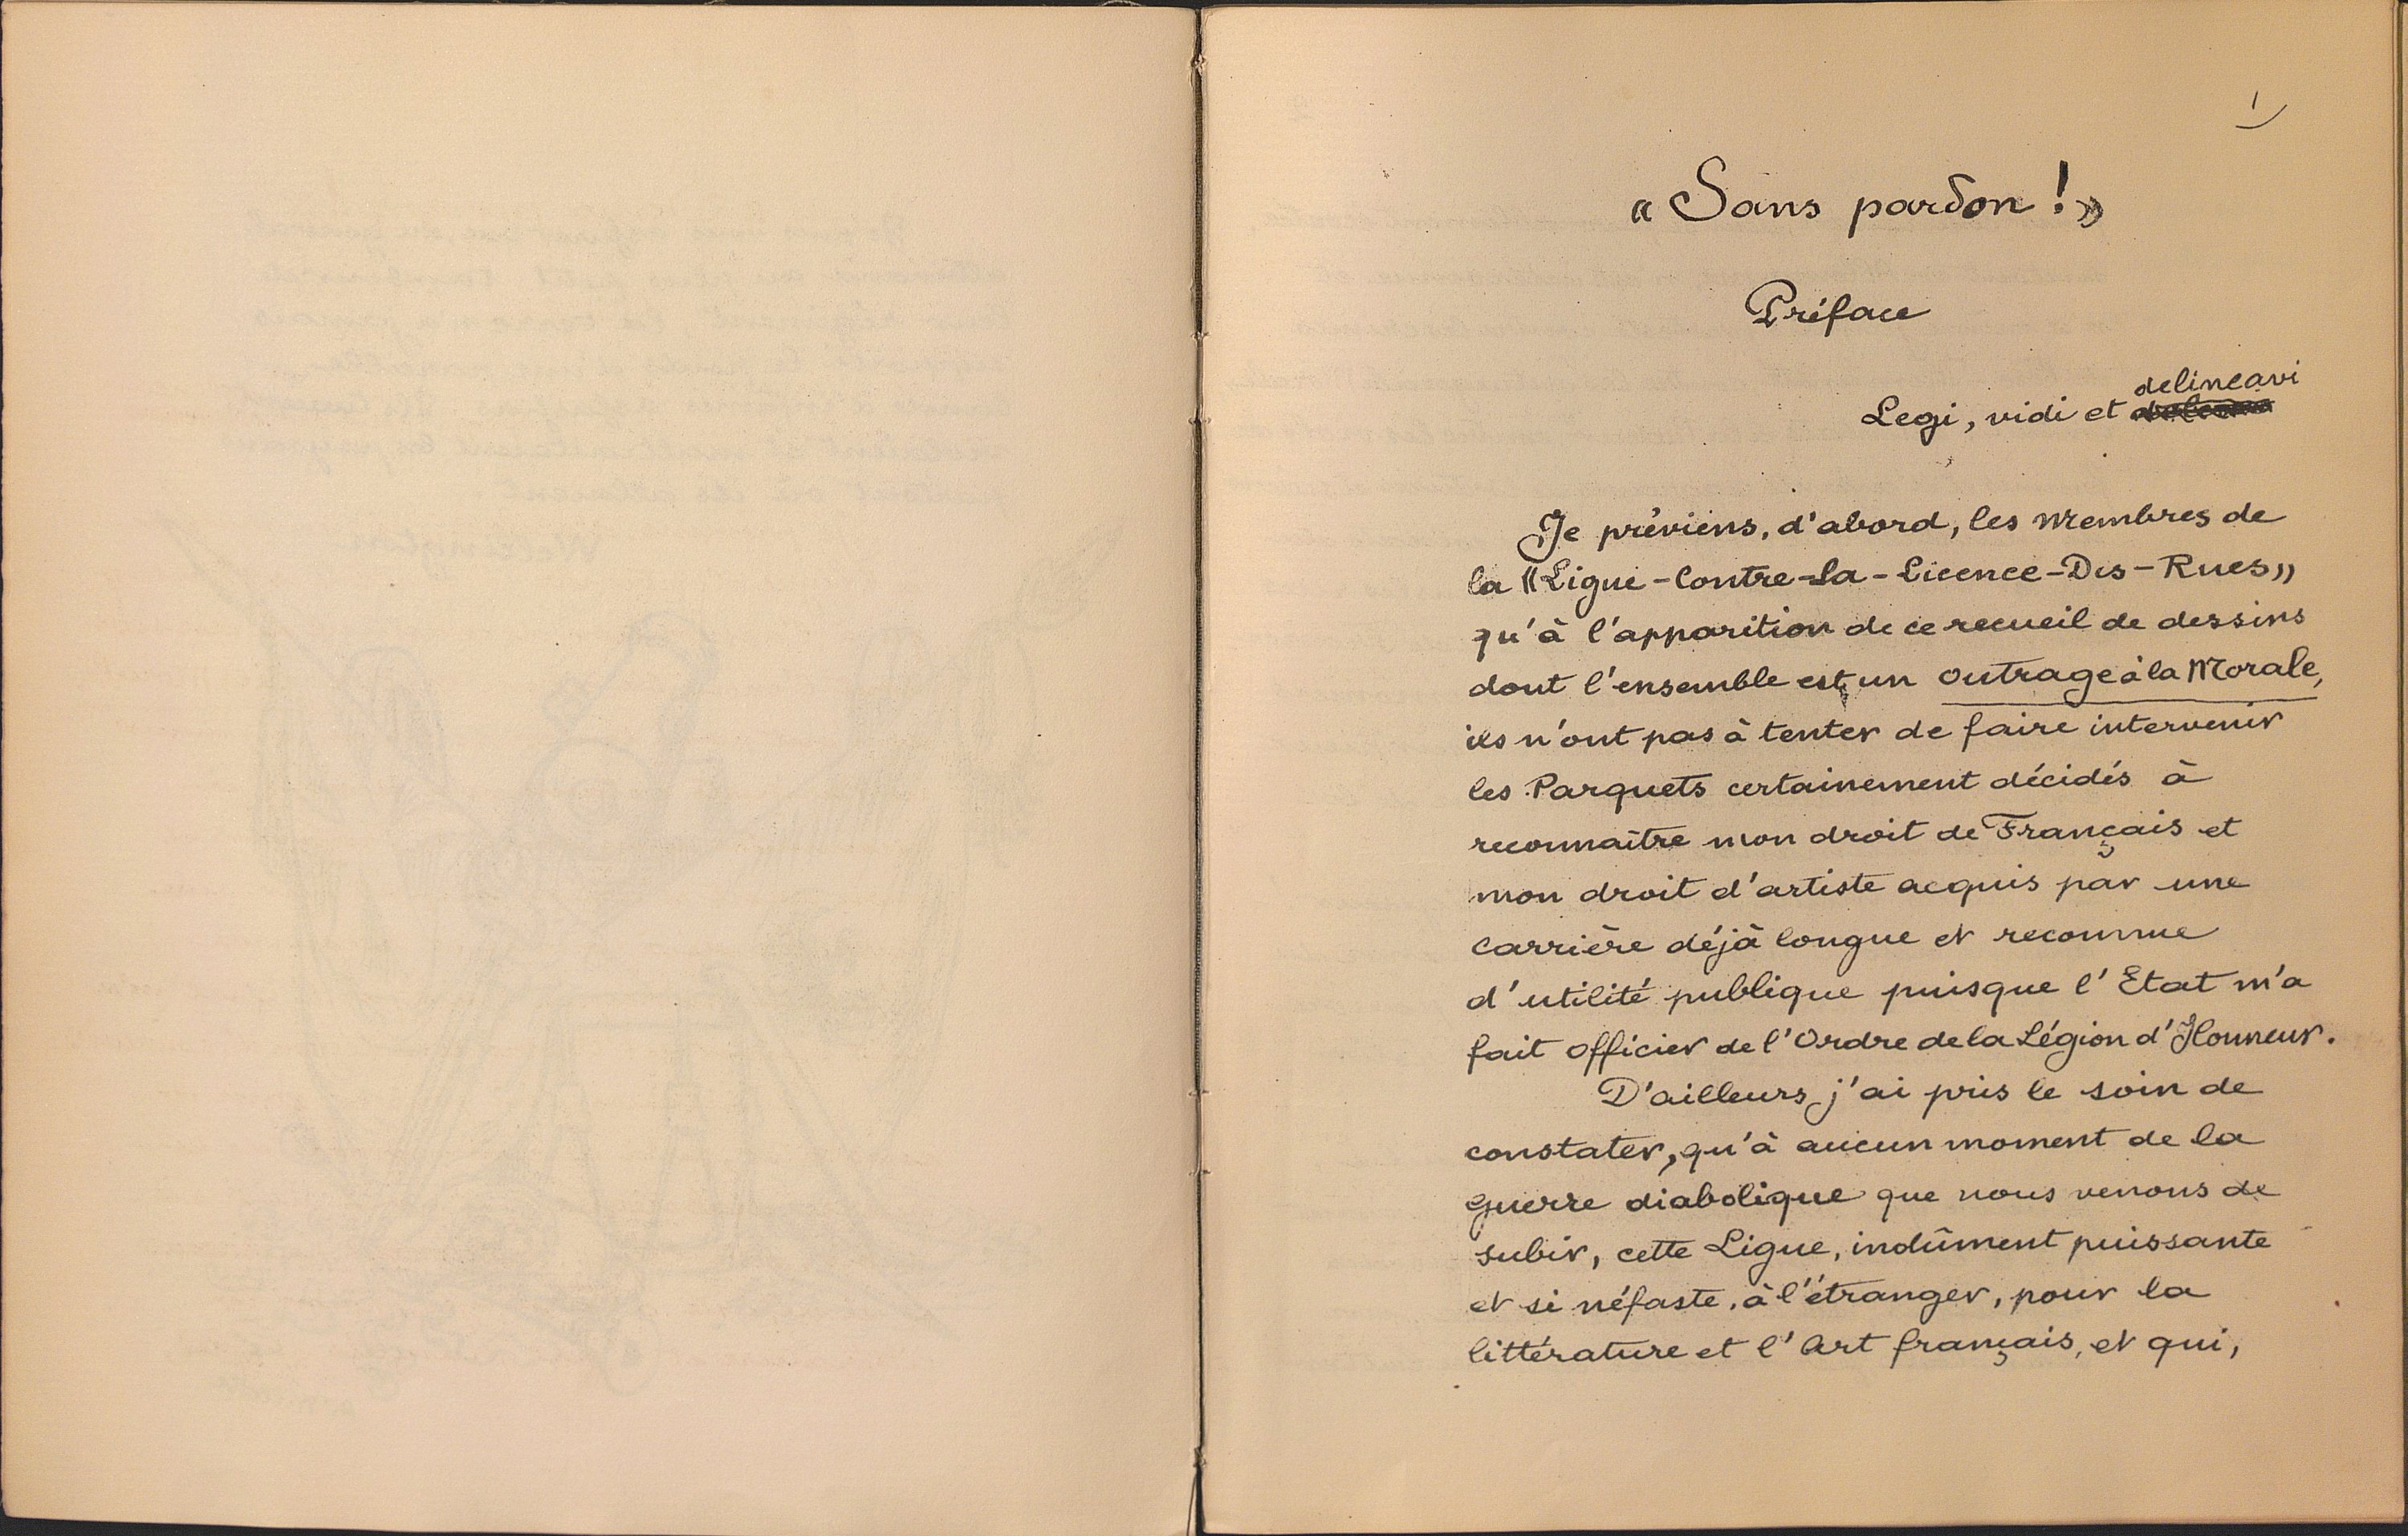 1
« Sans pardon ! »
Préface
delineavi
Legi, vidi et
Je préviens, d'abord, les Membres de
la « Ligue-Contre-La-Licence-Des-Rues »
qu'à l'apparition de ce recueil de dessins
dont l'ensemble est un Outrage à la Morale,
ils n'ont pas à tenter de faire intervenir
les Parquets certainement décidés à
reconnaître mon droit de Français et
mon droit d'artiste acquis par une
carrière déjà longue et reconnue
d'utilité publique puisque l'Etat m'a
fait officier de l'Ordre de la Légion d'Honneur.
D'ailleurs j'ai pris le soin de
constater, qu'à aucun moment de la
guerre diabolique que nous venons de
subir, cette Ligue, indûment puissante
et si néfaste, à l'étranger, pour la
littérature et l'Art français, et qui,